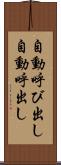 自動呼び出し
自動呼出し